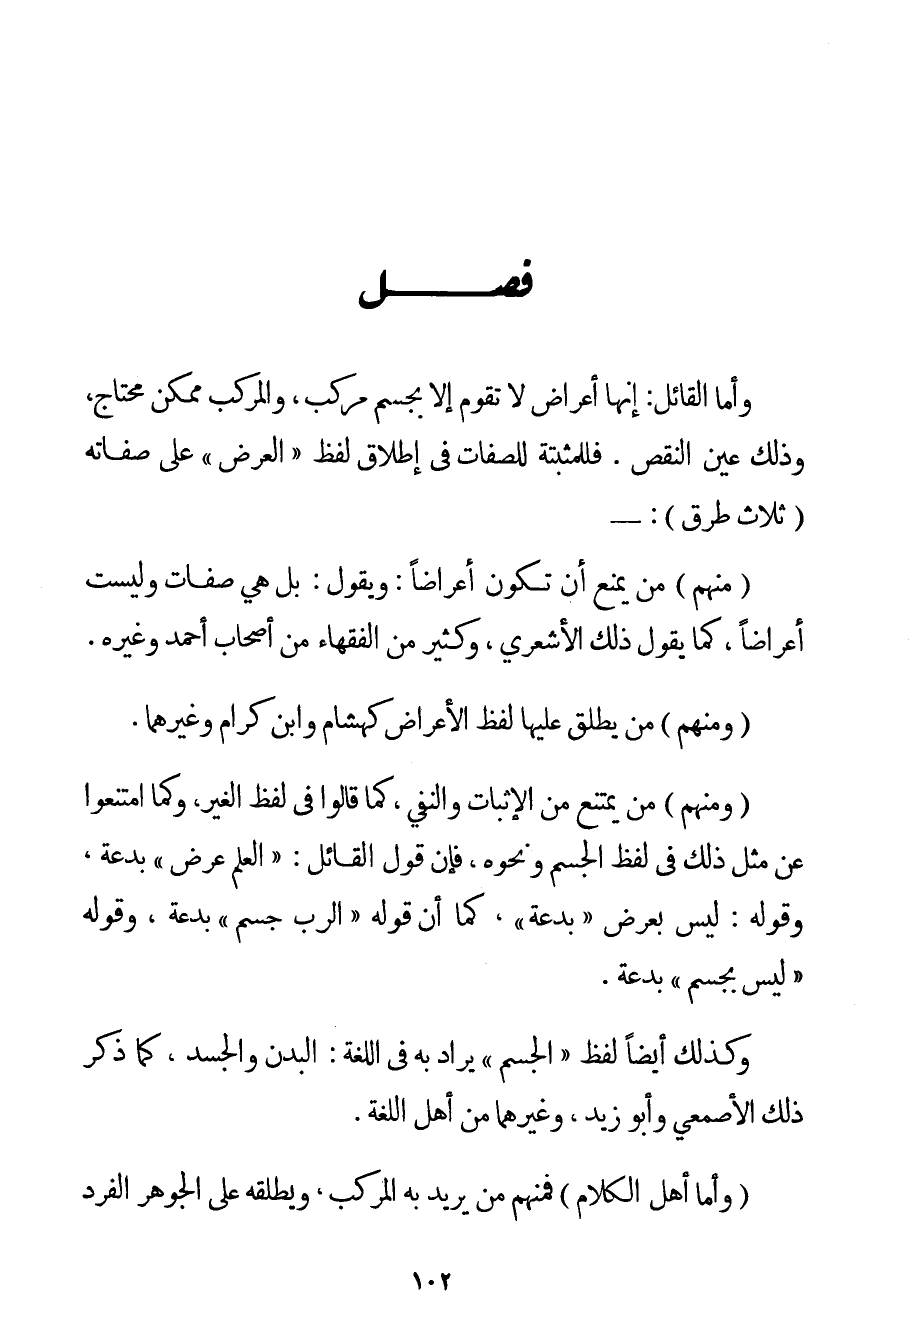 فصل
وأما القائل: إنها أعراض لا تقوم إلا بجسم مركب، والمركب ممكن محتاج،
وذلك عين النقص . فللمثبتة للصفات فى إطلاق لفظ « العرض » على صفاته
( ثلاث طرق ) : —
( منهم ) من يمنع أن تكون أعراضاً : ويقول : بل هي صفات وليست
أعراضاً ، كما يقول ذلك الأشعري ، وكثير من الفقهاء من أصحاب أحمد وغيره .
( ومنهم ) من يطلق عليها لفظ الأعراض كهشام وابن كرام وغيرهما .
( ومنهم ) من يمتنع من الإثبات والنفي ، كما قالوا فى لفظ الغير، وكما امتنعوا
عن مثل ذلك فى لفظ الجسم ونحوه ، فإن قول القائل : « العلم عرض » بدعة ،
وقوله : ليس بعرض « بدعة» ، كما أن قوله « الرب جسم » بدعة ، وقوله
« ليس بجسم » بدعة .
وكذلك أيضاً لفظ « الجسم » يراد به فى اللغة : البدن والجسد ، كما ذكر
ذلك الأصمعي وأبو زيد ، وغيرهما من أهل اللغة .
( وأما أهل الكلام ) فمنهم من يريد به المركب ، ويطلقه على الجوهر الفرد
١٠٢